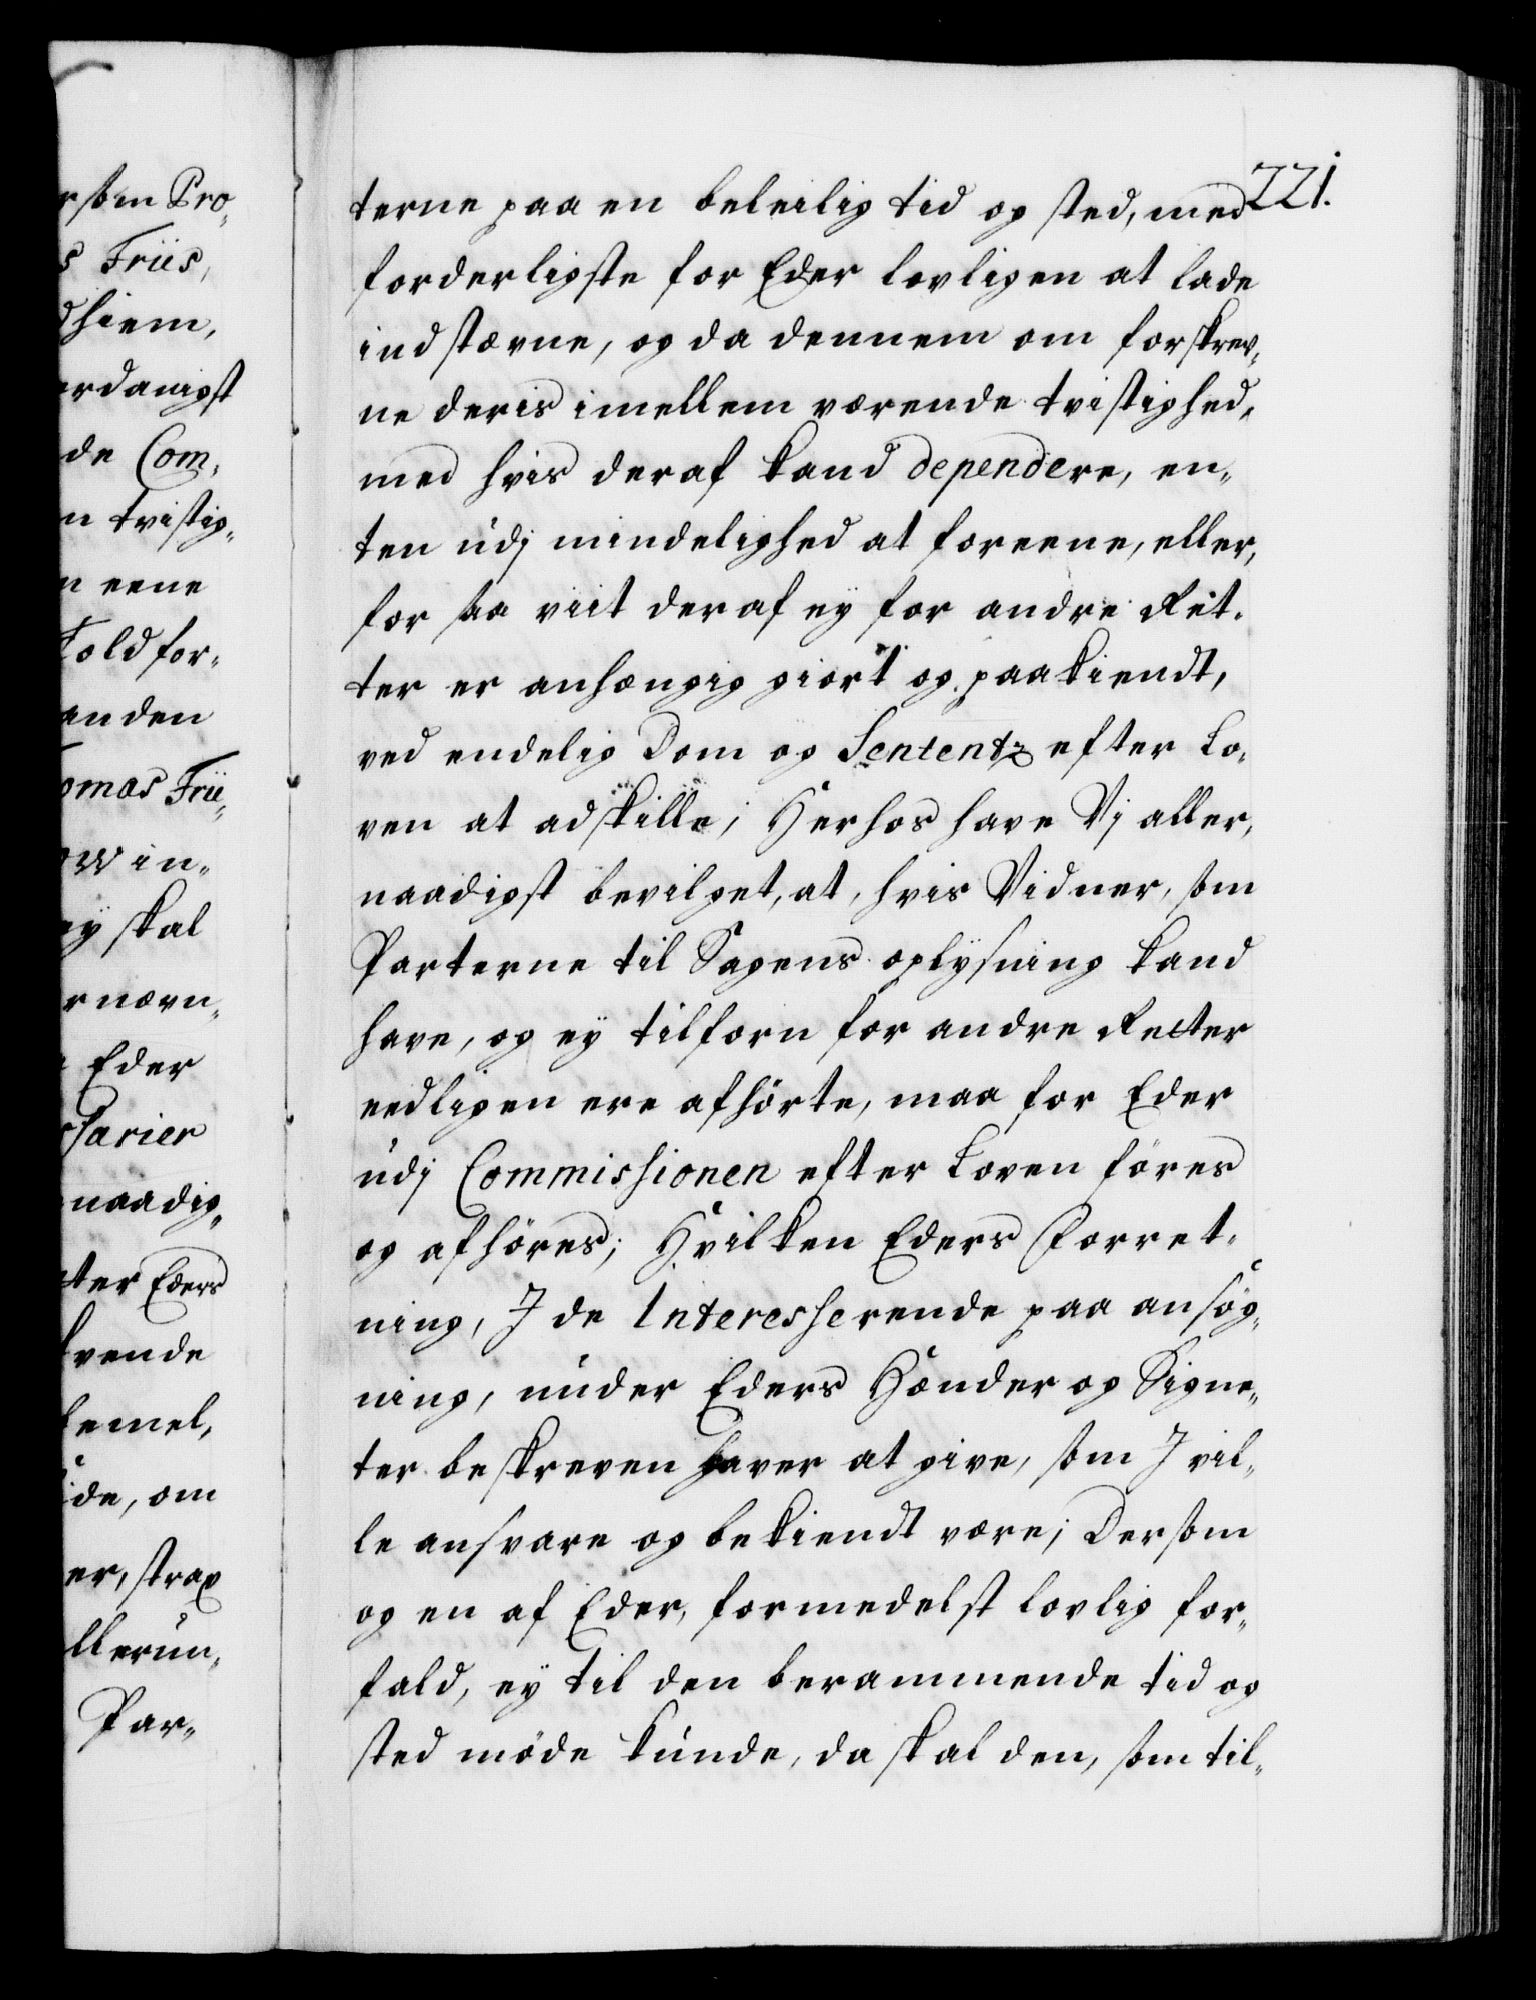 rsom Pro„
s Friis,
dhiem,
erdanigst
de Com„
n tvistig„
n eene
Told for„
anden
omas Frii„
ow in„
ey skal
r nævn„
Eder
rsarier
naadig„
ter Eders
vende
emel,
ide, om
er, strax
llerun„
Par„
221.
terne paa en beleilig tid og sted, med
forderligste for Eder lovligen at lade
indstævne, og da dennem om forskrev„
ne deris imellem værende tvistighed,
med hvis deraf kand dependere, en„
ten udj mindelighed at foreene, eller,
for saa viit deraf ey for andre Ret„
ter er anhængig giort og paakiendt,
ved endelig Dom og Sententz efter Lo„
ven at adskille; Herhos have Vj aller„
naadigst bevilget, at, hvis Vidner, som
Parterne til Sagens oplysning kand
have, og ey tilforn for andre Retter
eedligen ere afhørte, maa for Eder
udj Commissionen efter Loven føres
og afhøres; Hvilken Eders Forret„
ning, J de Interesserende paa ansøg„
ning, under Eders Hænder og Signe„
ter beskreven haver at give, som J vil„
le ansvare og bekiendt være; Dersom
og en af Eder, formedelst lovlig for„
fald, ey til den berammende tid og
sted møde kunde, da skal den, som til„